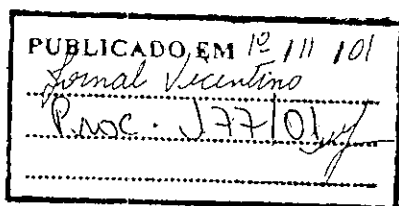 PUBLICADO EM 1º / 11 / 01
Jornal Vicentino
Proc. 177/01